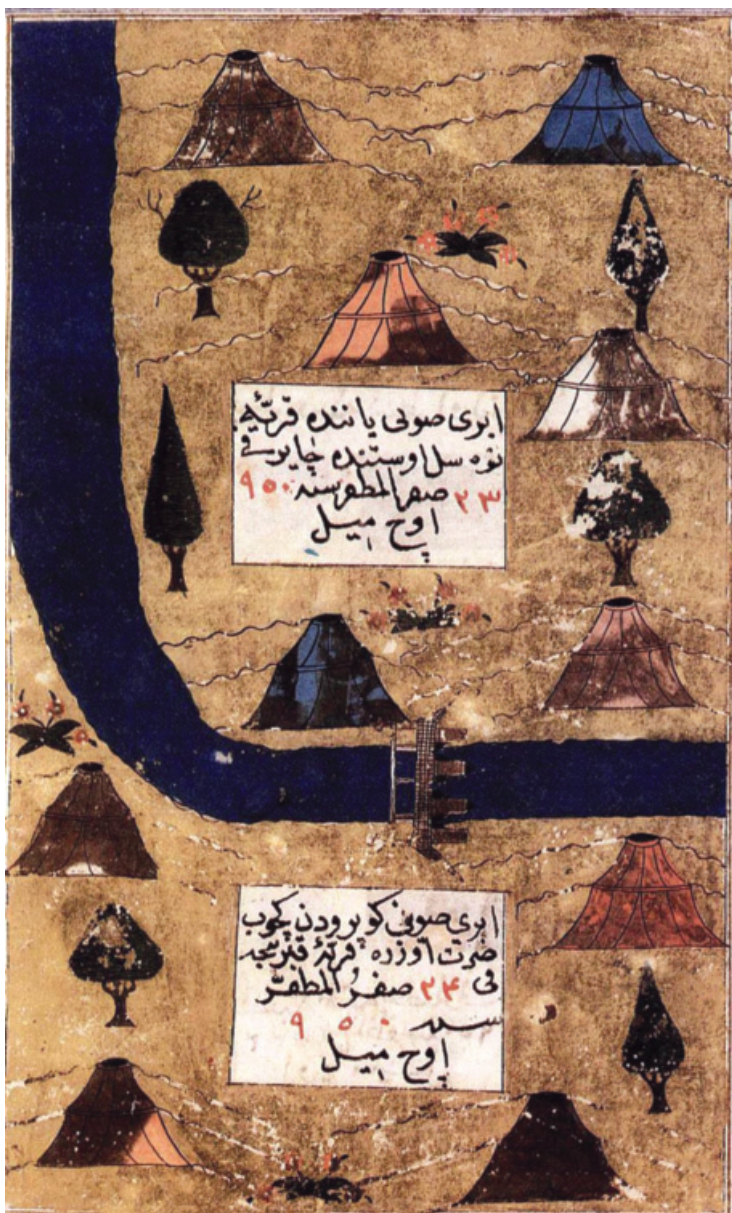 ایری صویی یاننده قریهٔ
نوه سل اوستنده چایر فی
۲۳ صفر المظفر سنه ۹۵۰
اوچ میل
ایری صویی کوپرودن کچوب
صرت اوزره قریهٔ
فی ۲۴ صفر المظفر
سنه ۹۵۰
اوچ میل